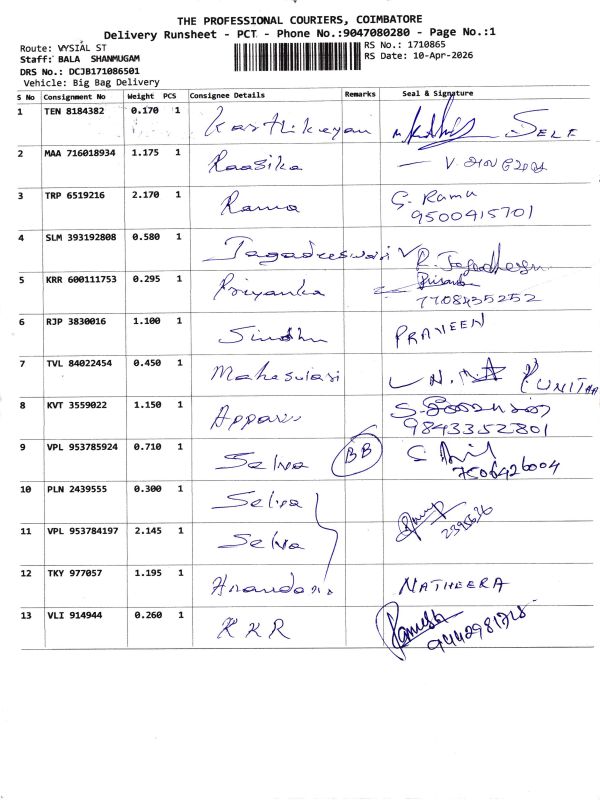 THE PROFESSIONAL COURIERS, COIMBATORE
Delivery Runsheet - PCT - Phone No.:9047080280 - Page No.:1
Route: VYSIAL ST
RS No.: 1710865
Staff: BALA SHANMUGAM
RS Date: 10-Apr-2026
DRS No.: DCJB171086501
Vehicle: Big Bag Delivery
S No Consignment No Weight PCS Consignee Details Remarks Seal & Signature
1 TEN 8184382 0.170 1 Karthikeyan SELF
2 MAA 716018934 1.175 1 Raasika
3 TRP 6519216 2.170 1 Rama G. Rama
9500415701
4 SLM 393192808 0.580 1 Jagadeeswari
5 KRR 600111753 0.295 1 Priyanka
7708435252
6 RJP 3830016 1.100 1 Sindhu PRAVEEN
7 TVL 84022454 0.450 1 Maheswari
8 KVT 3559022 1.150 1
9843352801
9 VPL 953785924 0.710 1 Selva BB
7506426004
10 PLN 2439555 0.300 1 Selva
11 VPL 953784197 2.145 1 Selva
12 TKY 977057 1.195 1 NATHEERA
13 VLI 914944 0.260 1 KKR